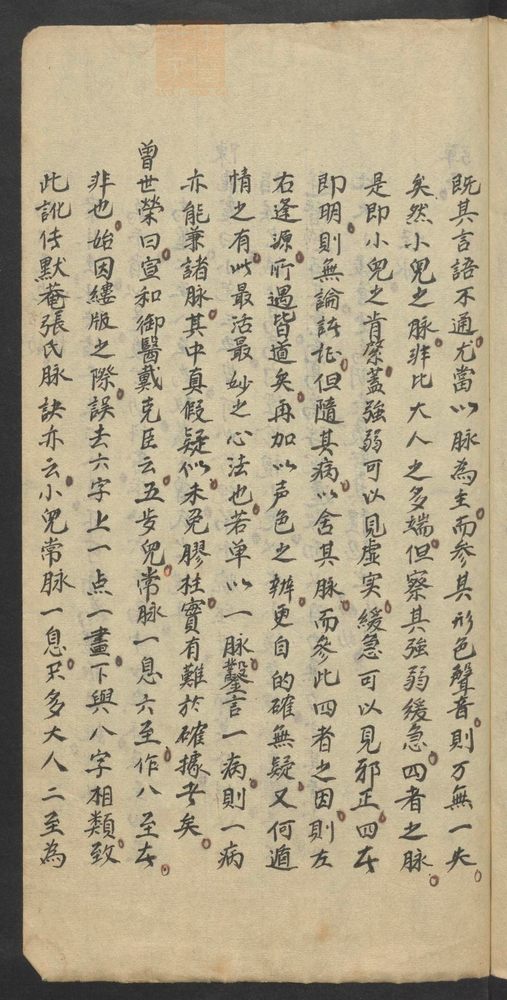 既其言語不通尤當以脉為主而參其形色聲音則万無一失
矣然小兒之脉非比大人之多端但察其強弱緩急四者之脉
是即小兒之肯綮蓋強弱可以見虛实緩急可以見邪正四者
即明則無論諸症但隨其病以舍其脉而參此四者之因則左
右逢源所遇皆道矣再加以声色之辨更自的確無疑又何遁
情之有此最活最妙之心法也若单以一脉鑿言一病則一病
亦能兼諸脉其中真假疑似未免膠柱實有難於確據者矣
曾世榮曰宣和御醫戴克臣云五岁兒常脉一息六至作八至者
非也始因縷版之際誤去六字上一点一畫下與八字相類致
此訛传默菴張氏脉訣亦云小兒常脉一息只多大人二至為